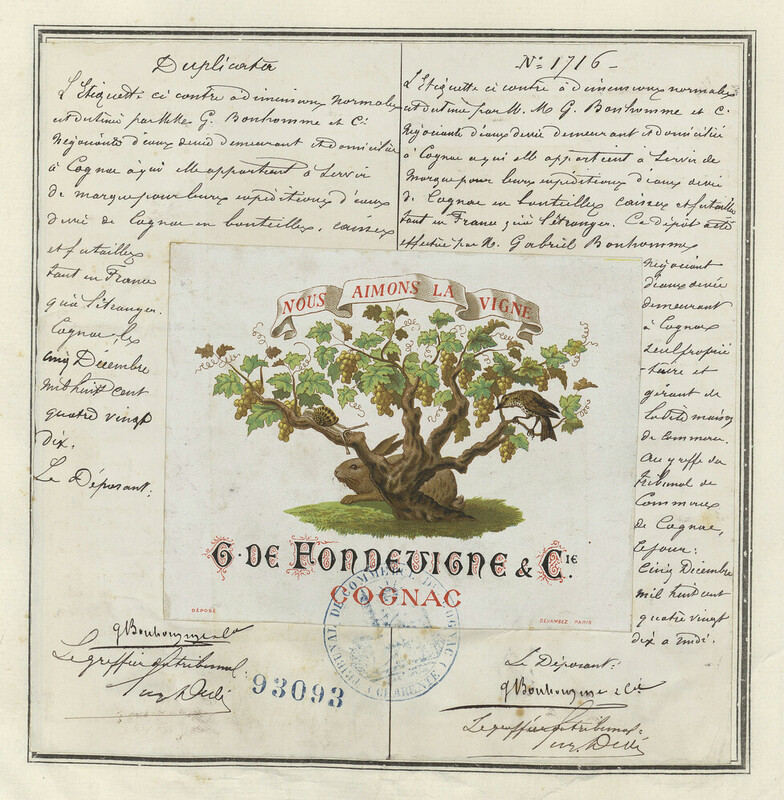 Duplicata
L'Etiquette ci contre a dimensions normales
est destinée par MMrs G. Bonhomme et Cie
Négociants d'eaux de vie demeurant et domiciliés
à Cognac à qui elle appartient à servir
de marque pour leurs expéditions d'eaux
de vie de Cognac en bouteilles, caisses
et futailles
tant en France
qu'à l'étranger.
Cognac, le
cinq Décembre
mil huit cent
quatre vingt
dix.
Le Déposant:
G Bonhomme & Cie
Le greffier du tribunal:
93093
No 1716 -
L'Etiquette ci contre à dimensions normales
est destinée par M. M G. Bonhomme et Cie
Négociants d'eaux de vie demeurant et domiciliés
à Cognac à qui elle appartient à servir de
Marque pour leurs expéditions d'eaux de vie
de Cognac en bouteilles caisses et futailles
tant en France qu'à l'étranger. Ce dépôt a été
effectué par M. Gabriel Bonhomme
Négociant
d'eaux de vie
demeurant
à Cognac
seul proprié
-taire et
gérant de
la dite maison
de commerce.
Au greffe du
tribunal de
Commerce
de Cognac,
le jour:
Cinq Décembre
mil huit cent
quatre vingt
dix à midi.
Le Déposant:
G Bonhomme & Cie
Le greffier du tribunal:
NOUS AIMONS LA VIGNE
G. DE HONDEVIGNE & CIE.
COGNAC
DÉPOSÉ
DEVAMBEZ PARIS
TRIBUNAL DE COMMERCE DE COGNAC
(CHARENTE)